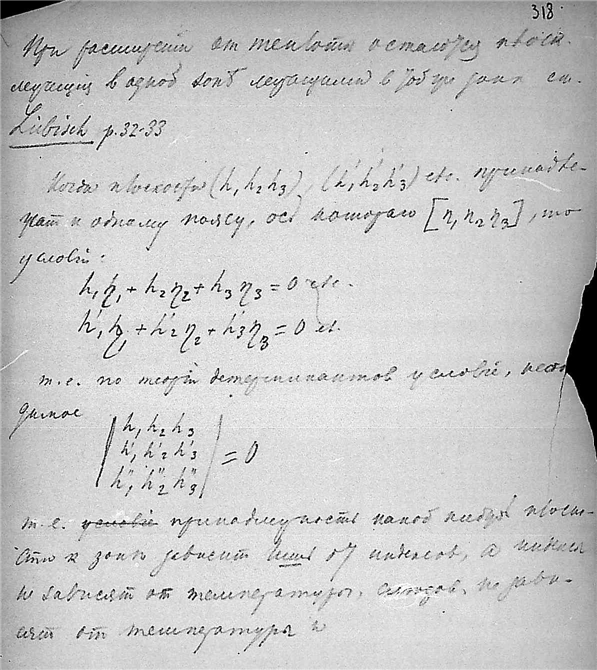 318
При расширении от теплоты остаются плоск.
лежащия в одной зонѣ лежащими в той же зонѣ см.
Liebisch p. 32-33
Когда плоскости (h₁ h₂ h₃), (h'₁ h'₂ h'₃) etc. принадле-
жат к одному поясу, ось котораго [η₁ η₂ η₃], то
условiе:
h₁η₁ + h₂η₂ + h₃η₃ = 0 etc.
h'₁η₁ + h'₂η₂ + h'₃η₃ = 0 et.
т.е. по теорiи детерминантов условiе, необхо
димое
| h₁ h₂ h₃ |
| h'₁ h'₂ h'₃ | = 0
| h''₁ h''₂ h''₃ |
т.е. условiе принадлежность какой нибудь плоско-
сти к зонѣ зависит лишь от индексов, а индексы
не зависят от температуры, следов. не зави-
сят от температуры и